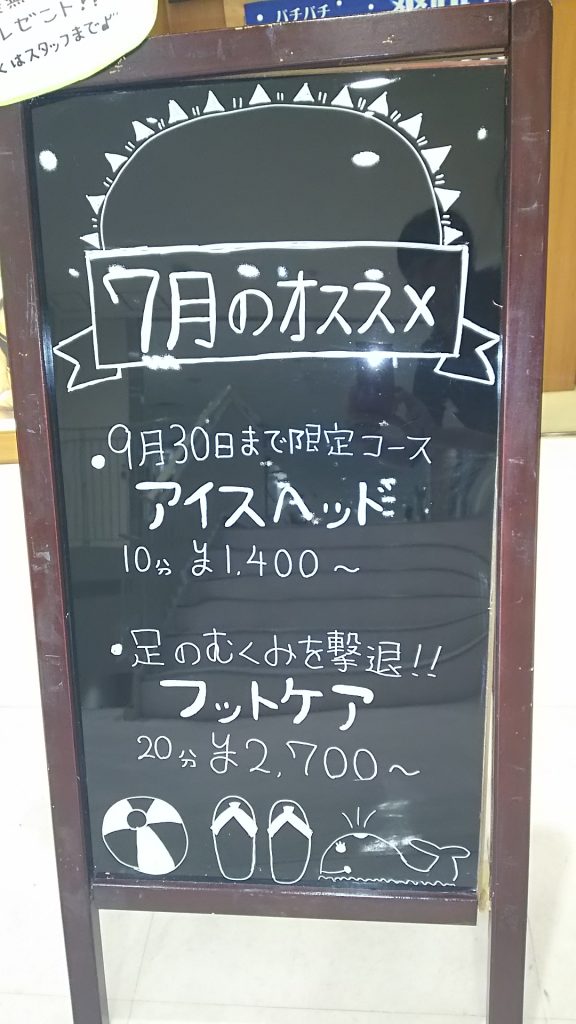 レゼント!!
くはスタッフまで♪
パチパチ
7月のオススメ
・9月30日まで限定コース
アイスヘッド
10分 ¥1,400～
・足のむくみを撃退!!
フットケア
20分 ¥2,700～